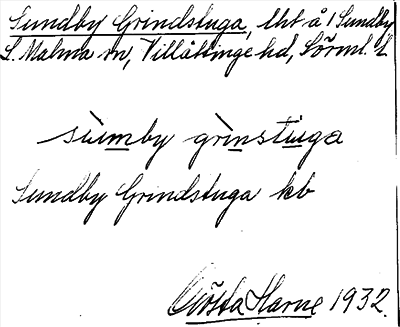 Sundby Grindstuga, lht å 1 Sundby
L. Malma sn, Villåttinge hd, Sörml. l.
sùmby grìnstuga
Sundby Grindstuga kb
Gösta Harne 1932.